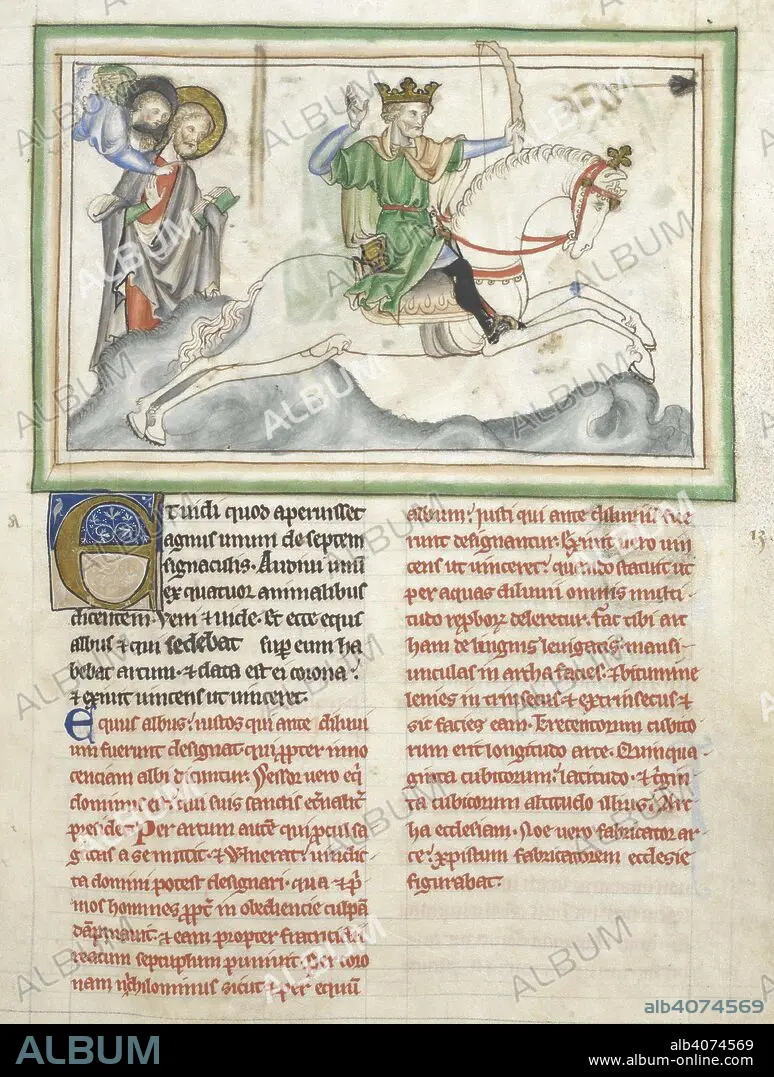 Et vidi quod aperuisset
agnus unum de septem
signaculis. Audivi unu
ex quatuor animalibus
dicentem. Veni et vide. Et ecce equs
albus et qui sedebat sup eum ha
bebat arcum. et data est ei corona.
et exivit vincens ut vinceret.
Equus albus. iustos qui ante diluvi
um fuerunt designat. qui ppter inno
cenciam albi dicuntur. Sessor vero eq
dominus est. qui suis sanctis
presidet. Per arcum aute qui pcul sa
gittas a se mittit et vulnerat. vindic
ta domini potest designari. qua et p
mos homines ppt in obediencie culpa
dampnavit. et eam propter fratricidii
reatum septuplum punivit. Per coro
nam nichilominus sicut et per equu
album. iusti qui ante diluviu fue
runt designantur. Exivit vero vin
cens ut vinceret. quando statuit ut
per aquas diluvii omnis multi
tudo repbor deleretur. fac tibi ar
cham de lingnis levigatis. mansi
unculas in archa facies. et bitumine
lenies in trinsecus et extrinsecus et
sic facies eam. Trecentorum cubito
rum erit longitudo arce. Quinqua
ginta cubitorum. latitudo. et tgin
ta cubitorum altitudo illius. Ar
cha ecclesiam. Noe vero fabricator ar
ce. xpistum fabricatorem ecclesie
figurabat.
13.
ALBUM
alb4074569
ALBUM
alb4074569
www.album-online.com